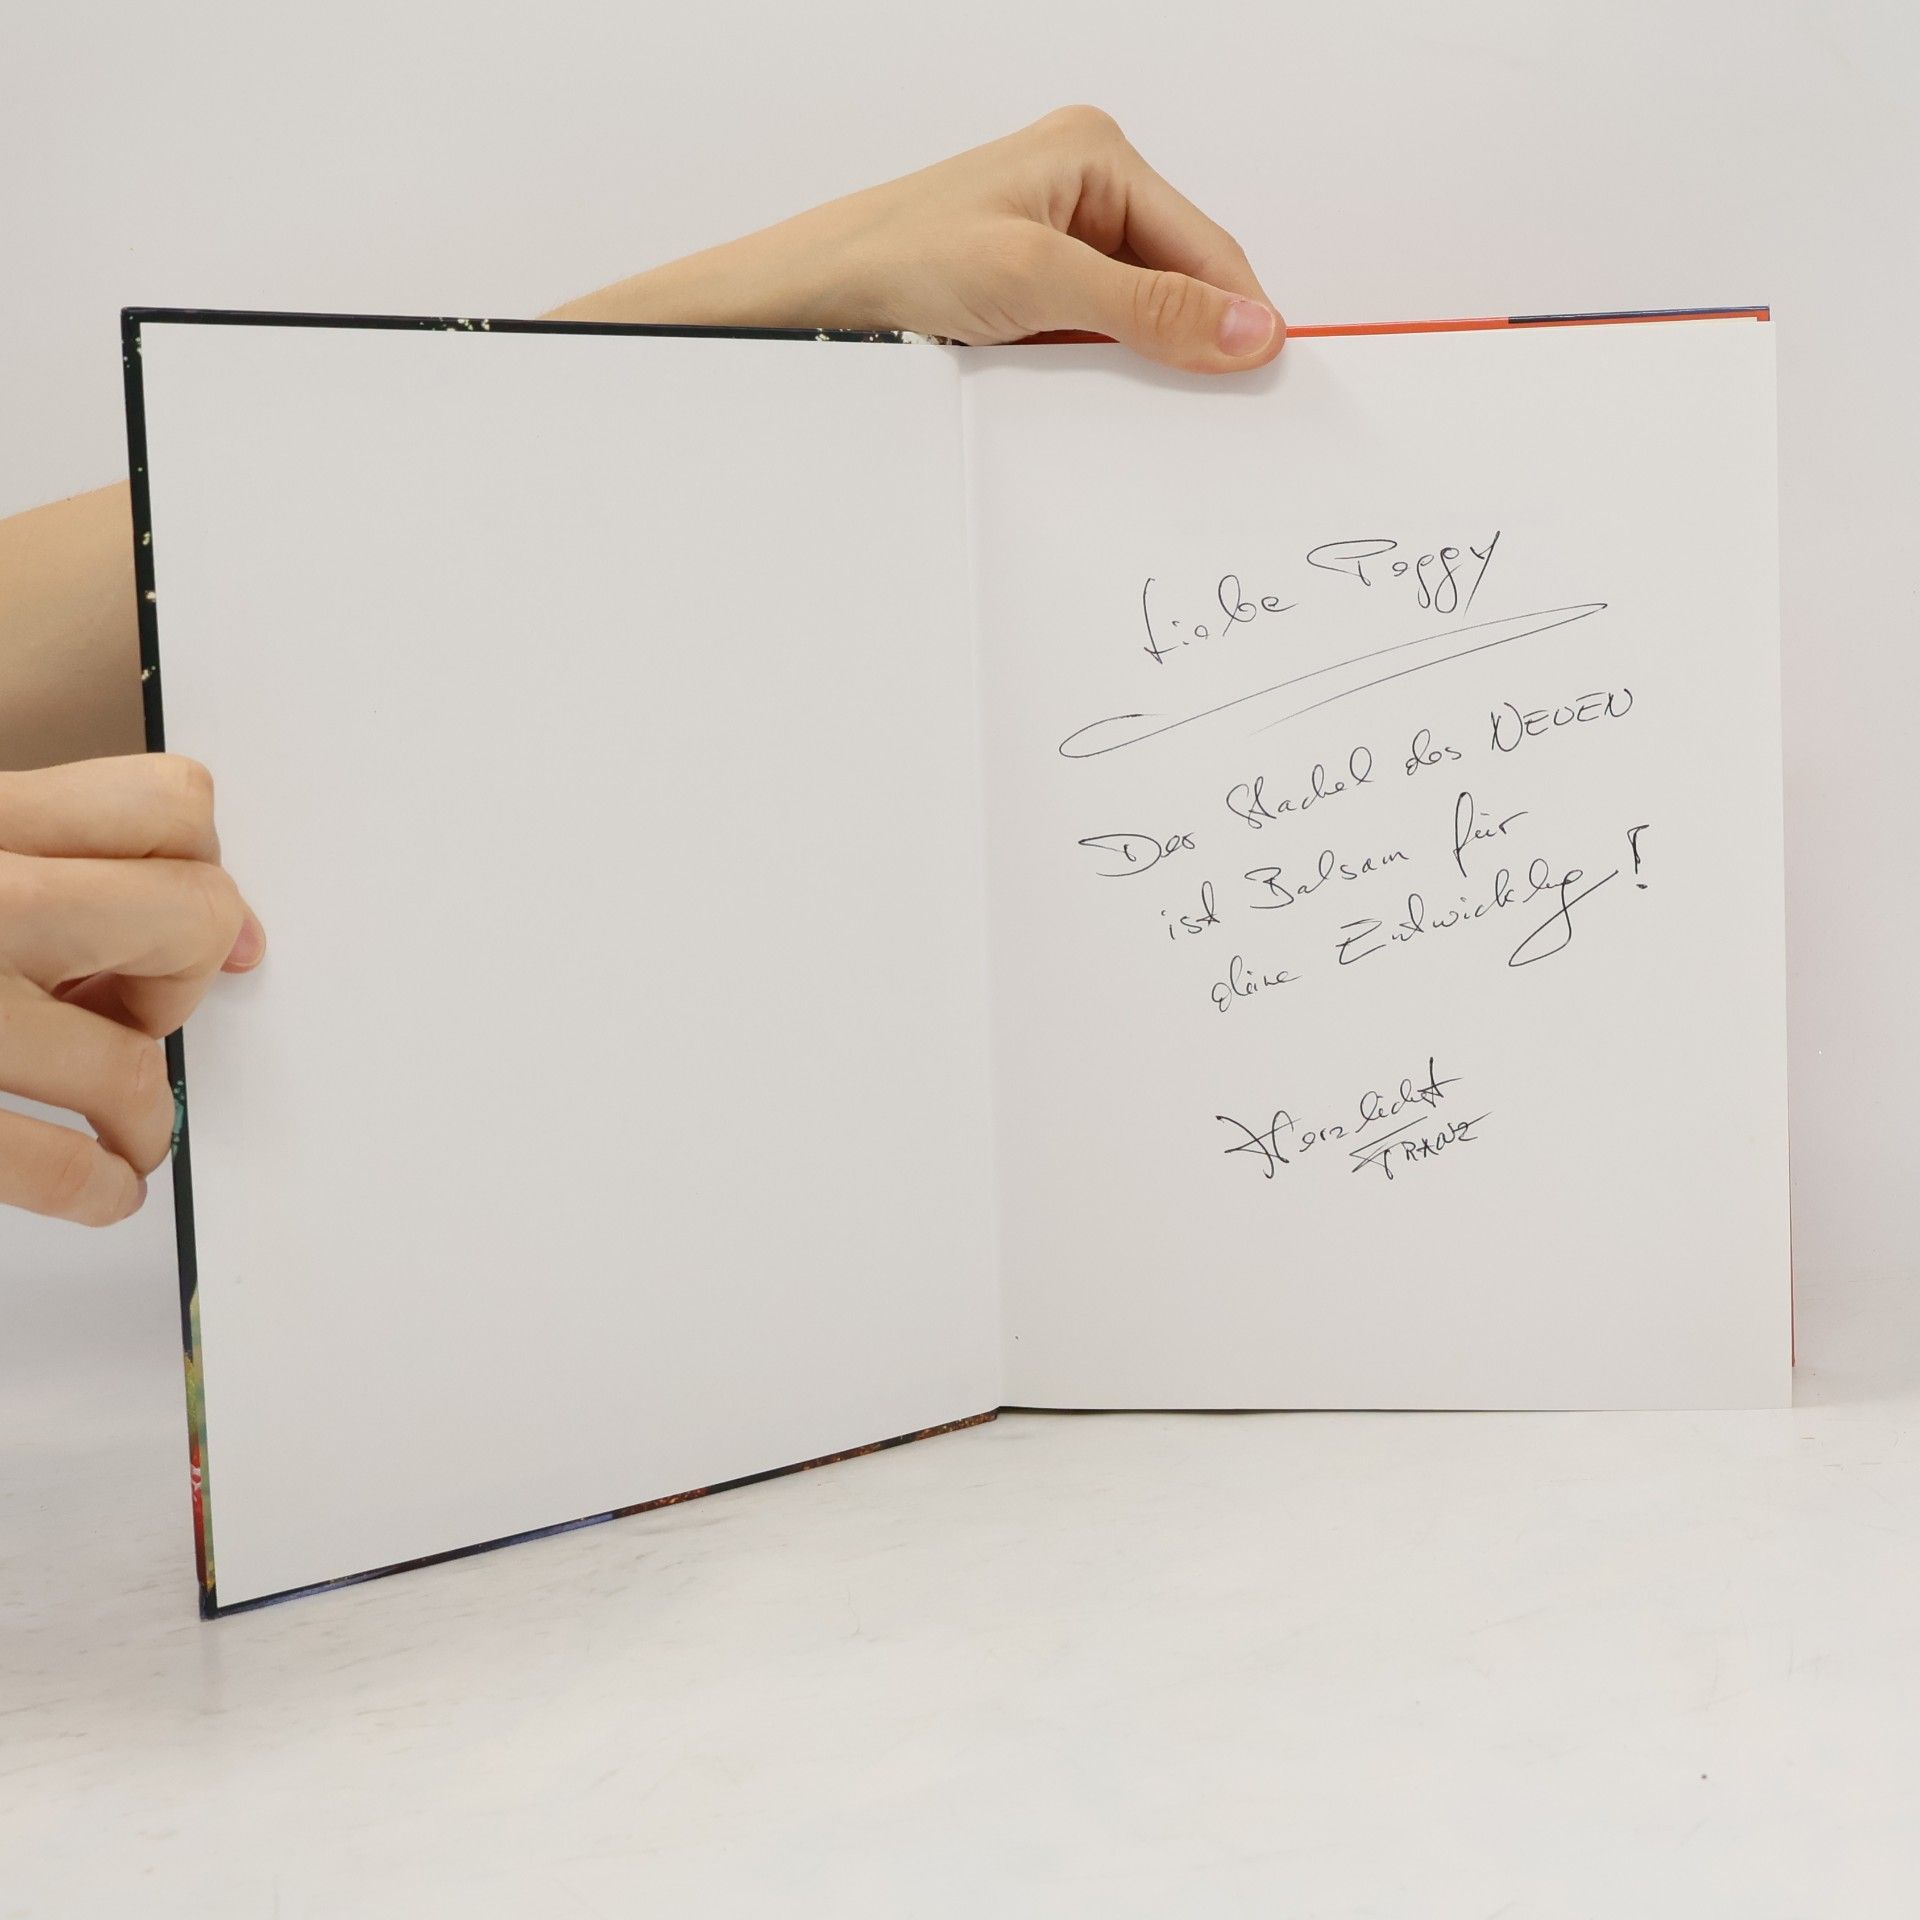 Liebe Peggy
Der Stachel des NEUEN
ist Balsam für
deine Entwicklg!
Herzlichst
FRANZ